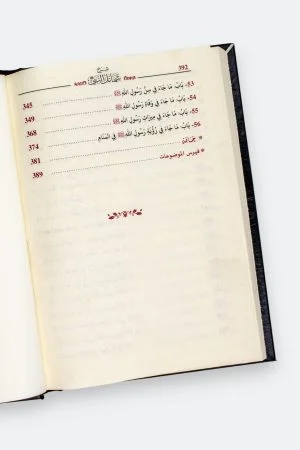 392
شرح
شمائل النبي ﷺ
53- بَابُ: مَا جَاءَ فِي سِنِّ رَسُولِ اللهِ ﷺ ... 345
54- بَابُ: مَا جَاءَ فِي وَفَاةِ رَسُولِ اللهِ ﷺ ... 349
55- بَابُ: مَا جَاءَ فِي مِيرَاثِ رَسُولِ اللهِ ﷺ ... 368
56- بَابُ: مَا جَاءَ فِي رُؤْيَةِ رَسُولِ اللهِ ﷺ فِي المَنَامِ ... 374
* خَاتمة ... 381
* فهرس الموضوعات ... 389